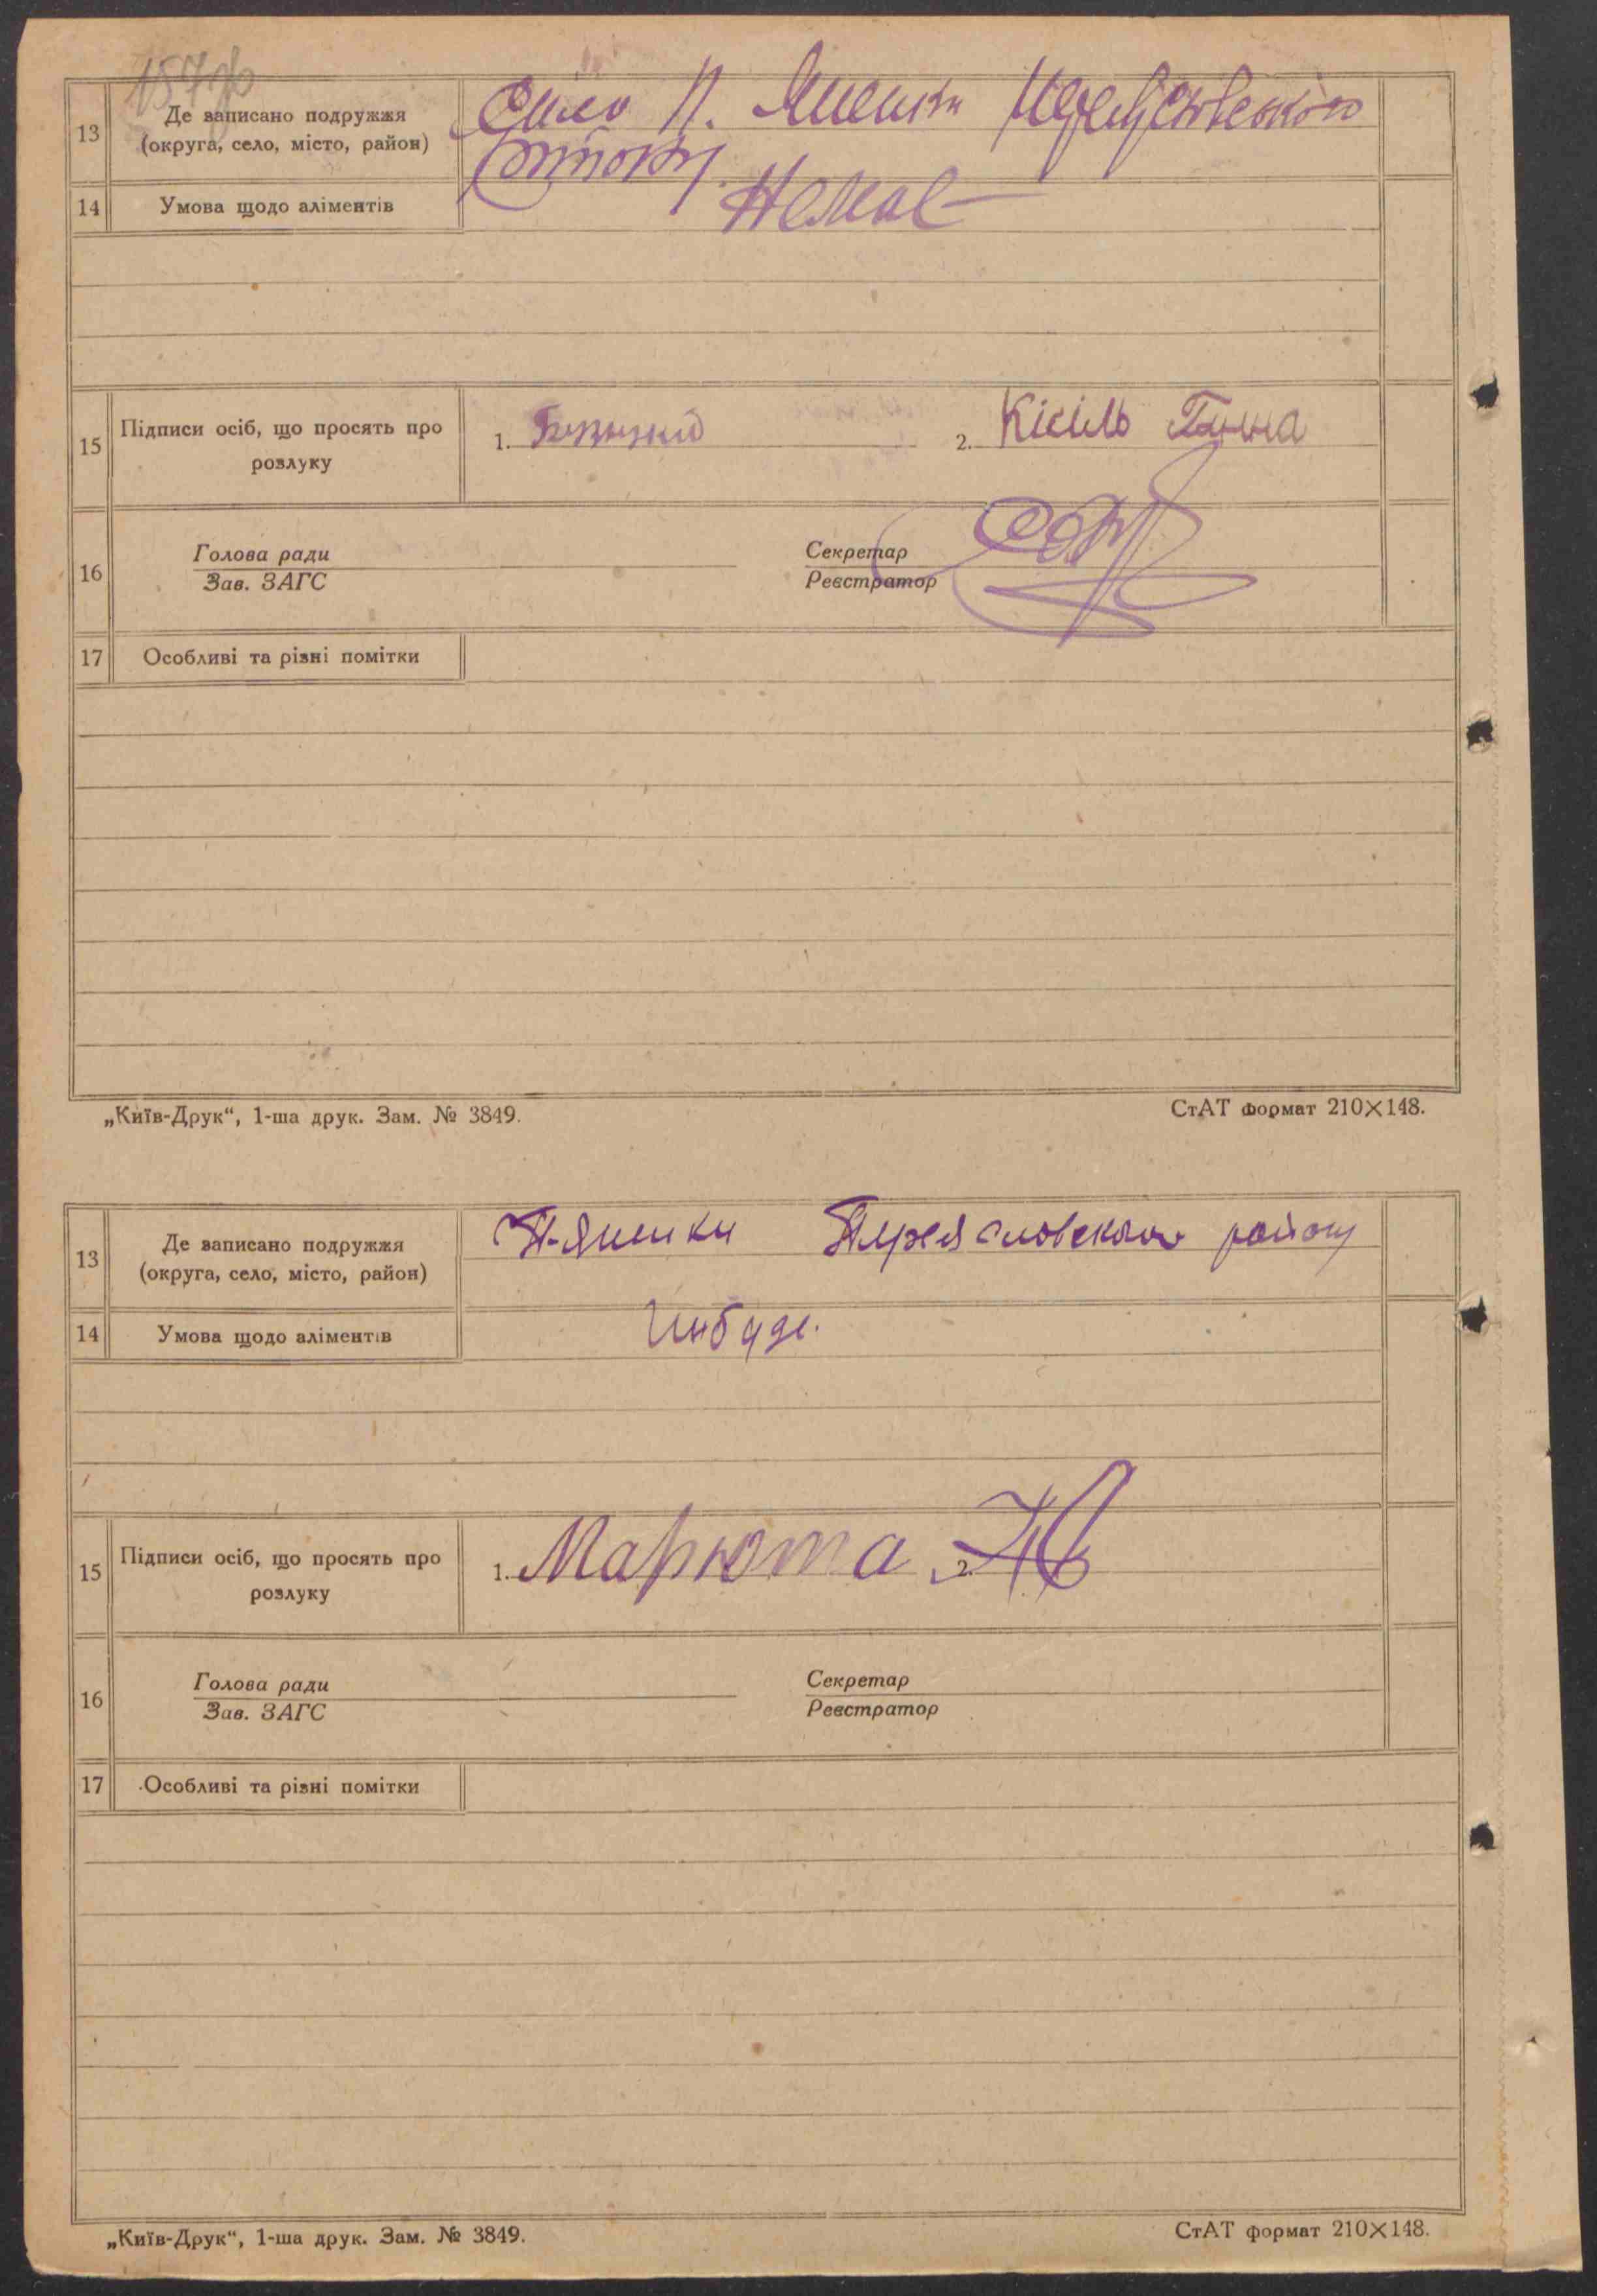 13 Де записано подружжя
(округа, село, місто, район)
Село П. Яшники
14 Умова щодо аліментів
Немає
15 Підписи осіб, що просять про
розлуку
1. 2. Кісіль Ганна
16 Голова ради Секретар
Зав. ЗАГС Реєстратор
17 Особливі та різні помітки
„Київ-Друк“, 1-ша друк. Зам. № 3849. СтАТ формат 210×148.
13 Де записано подружжя
(округа, село, місто, район)
району
14 Умова щодо аліментів
15 Підписи осіб, що просять про
розлуку
1. Марюта 2.
16 Голова ради Секретар
Зав. ЗАГС Реєстратор
17 Особливі та різні помітки
„Київ-Друк“, 1-ша друк. Зам. № 3849. СтАТ формат 210×148.